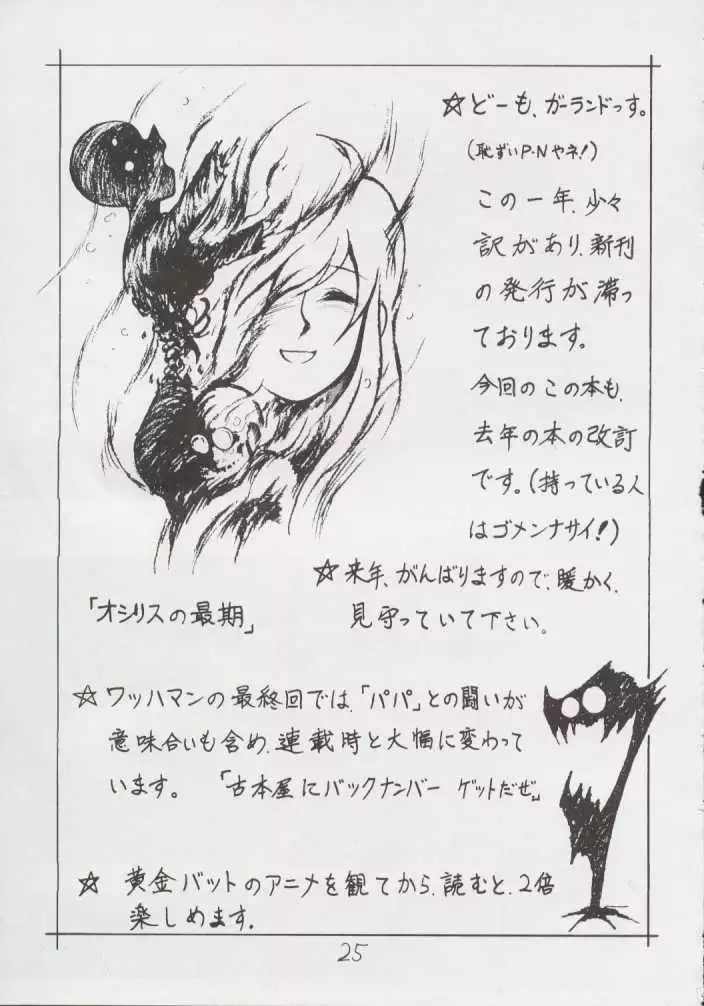 ☆どーも、ガーランドっす。
(恥ずいP.Nやネ!)
この一年、少々
訳があり、新刊
の発行が滞っ
ております。
今回のこの本も、
去年の本の改訂
です。(持っている人
はゴメンナサイ!)
☆来年、がんばりますので、暖かく、
見守っていて下さい。
「オシリスの最期」
☆ワッハマンの最終回では、「パパ」との闘いが
意味合いも含め、連載時と大幅に変わって
います。 「古本屋にバックナンバー ゲットだぜ」
☆ 黄金バットのアニメを観てから、読むと、2倍
楽しめます.
25